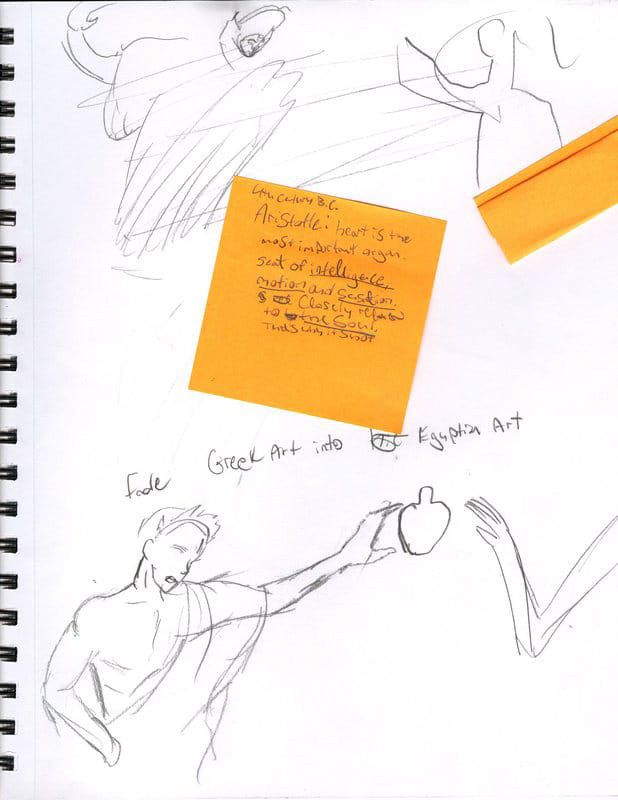 4th Century B.C.
Aristotle: heart is the
most important organ.
seat of intelligence,
motion and
Closely related
to the Soul.
Thats why it
Greek Art into Egyptian Art
Fade